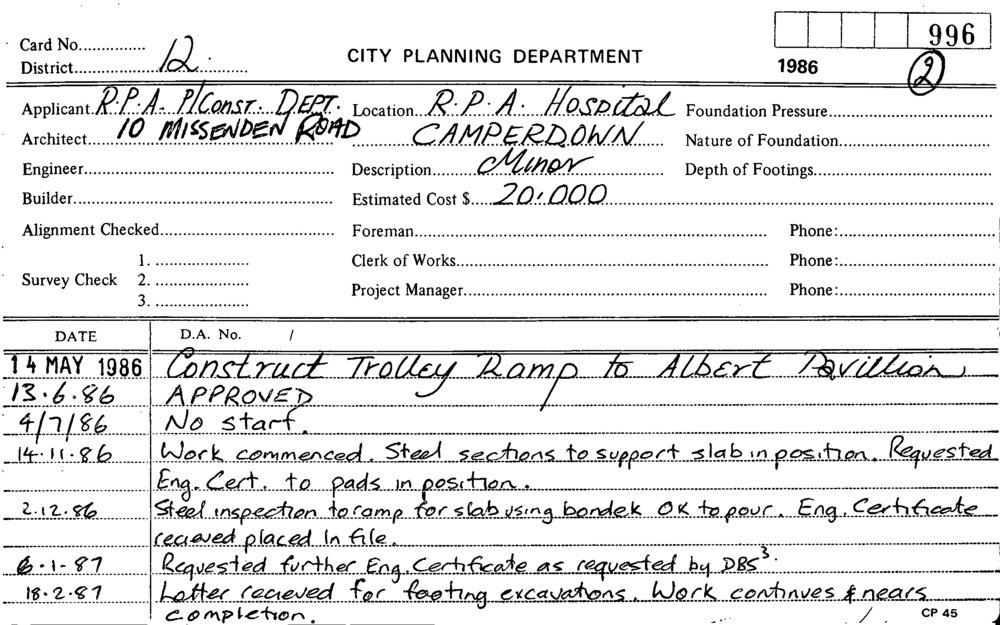 996
Card No...............
District.......12...........
CITY PLANNING DEPARTMENT
1986
2
Applicant R.P.A. P/CONST. DEPT. Location R.P.A. Hospital Foundation Pressure
Architect 10 MISSENDEN ROAD CAMPERDOWN Nature of Foundation
Engineer Description Minor Depth of Footings
Builder Estimated Cost $ 20,000
Alignment Checked Foreman Phone:
1. Clerk of Works Phone:
Survey Check 2.
Project Manager Phone:
3.
DATE D.A. No. /
14 MAY 1986 Construct Trolley Ramp to Albert Pavillion
13.6.86 APPROVED
4/7/86 No start.
14.11.86 Work commenced. Steel sections to support slab in position. Requested
Eng. Cert. to pads in position.
2.12.86 Steel inspection to ramp for slab using bondek OK to pour. Eng. Certificate
recieved placed In file.
6.1.87 Requested further Eng. Certificate as requested by DBS3.
18.2.87 Latter recieved for footing excavations. Work continues & nears
completion.
CP 45